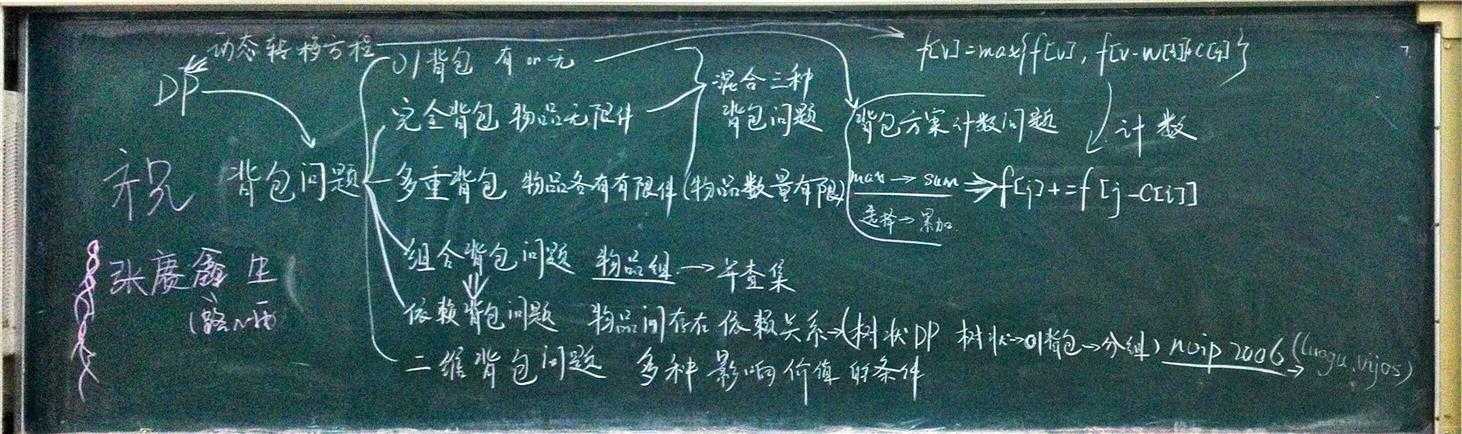 动态转移方程
f[v]=max{f[v], f[v-w[i]]+c[i]}
DP
01背包 有or无
混合三种
背包问题
完全背包 物品无限件
背包方案计数问题
计数
祝
背包问题
多重背包 物品各有有限件(物品数量有限)
max→sum⇒f[j]+=f[j-c[i]]
选择→累加
组合背包问题 物品组→并查集
张赓鑫生
依赖背包问题 物品间存在依赖关系→(树状DP 树状→01背包→分组) noip 2006 (luogu,vijos)
二维背包问题 多种影响价值的条件